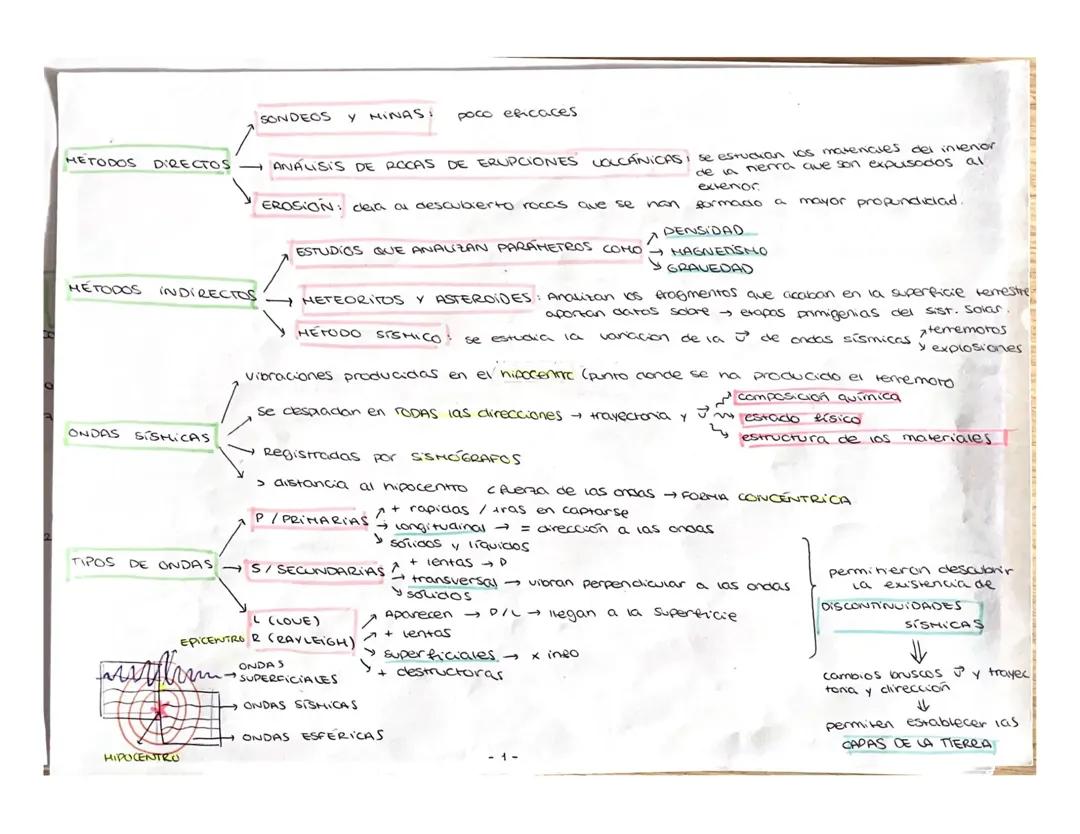 SONDEOS Y MINAS: poco eficaces
MÉTODOS DIRECTOS → ANÁLISIS DE ROCAS DE ERUPCIONES VOLCÁNICAS: se estudian los materiales del interior
de la tierra que son expulsados al
exterior.
EROSIÓN: deja al descubierto rocas que se han formado a mayor profundidad.
DENSIDAD
ESTUDIOS QUE ANALIZAN PARÁMETROS COMO → MAGNETISMO
GRAVEDAD
MÉTODOS INDIRECTOS → METEORITOS Y ASTEROIDES: Analizan los fragmentos que acaban en la superficie terrestre
aportan datos sobre → etapas primigenias del sist. solar.
MÉTODO SÍSMICO: se estudia la variación de la v de ondas sísmicas
terremotos
explosiones
vibraciones producidas en el hipocentro (punto donde se ha producido el terremoto
se desplazan en TODAS las direcciones → trayectoria y v
composición química
estado físico
estructura de los materiales
ONDAS SÍSMICAS
Registradas por SISMÓGRAFOS
> distancia al hipocentro < fuerza de las ondas → FORMA CONCÉNTRICA
P / PRIMARIAS
+ rapidas / 1ras en captarse
longitudinal → = dirección a las ondas
sólidos y líquidos
TIPOS DE ONDAS → S / SECUNDARIAS
+ lentas → P
transversal → vibran perpendicular a las ondas
sólidos
L (LOVE)
R (RAYLEIGH)
Aparecen → P/L → llegan a la superficie
+ lentas
superficiales → x info
+ destructoras
permitieron descubrir
la existencia de
DISCONTINUIDADES
SÍSMICAS
⇓
cambios bruscos v y trayec
toria y dirección
⇓
permiten establecer las
CAPAS DE LA TIERRA
EPICENTRO
ONDAS
SUPERFICIALES
ONDAS SÍSMICAS
ONDAS ESFÉRICAS
HIPOCENTRO
- 1 -